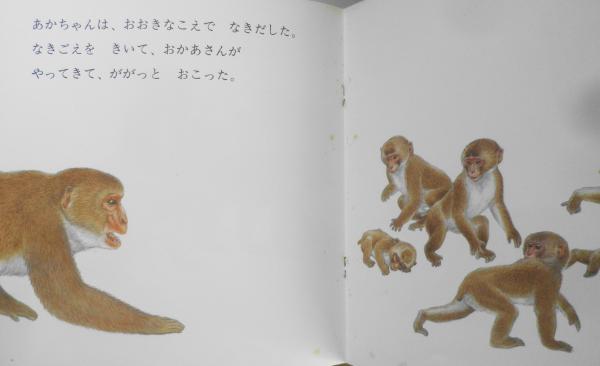 あかちゃんは、おおきなこえで　なきだした。
なきごえを　きいて、おかあさんが
やってきて、ががっと　おこった。